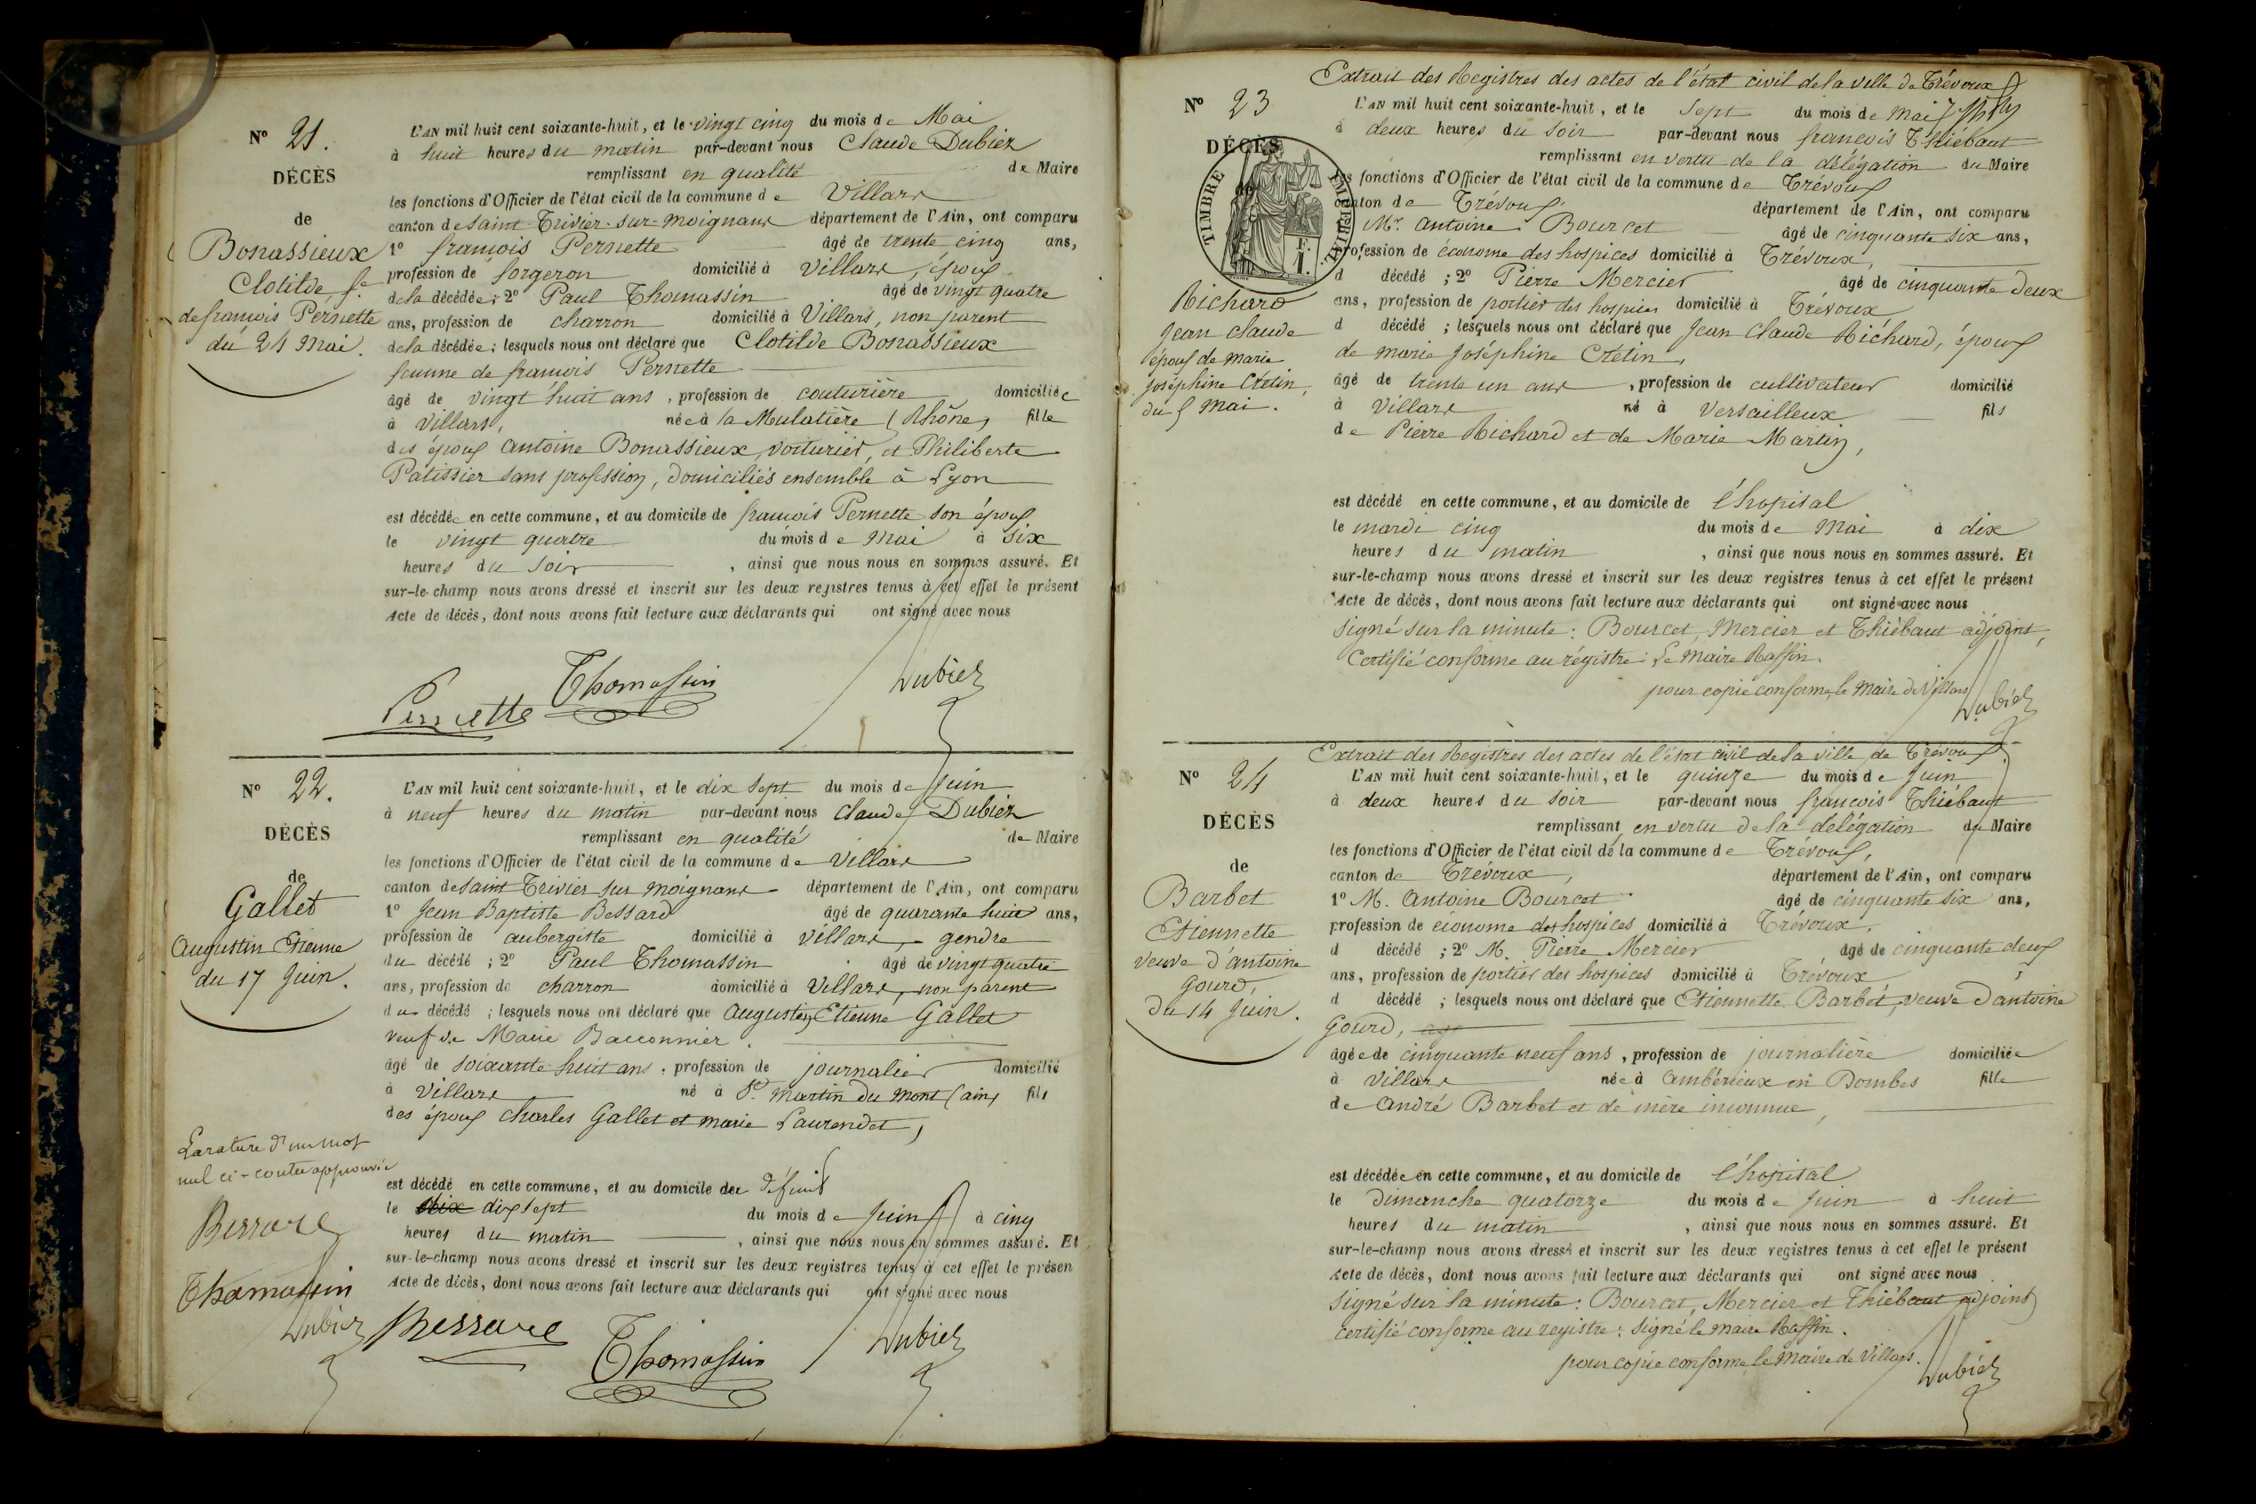 N° 21.
DÉCÈS
de
Bonassieux
Clotilde fe
de francois Pernette
du 24 Mai.
L'AN mil huit cent soixante-huit, et le vingt cinq du mois de Mai
à huit heures du matin par-devant nous Claude Dubiez
remplissant en qualité de Maire
les fonctions d'Officier de l'état civil de la commune de Villars
canton de saint Trivier-sur-moignans département de l'Ain, ont comparu
1° francois Pernette âgé de trente cinq ans,
profession de forgeron domicilié à Villars, époux
de la décédée; 2° Paul Thomassin âgé de vingt quatre
ans, profession de charron domicilié à Villars, non parent
de la décédée; lesquels nous ont déclaré que Clotilde Bonassieux
femme de francois Pernette
âgé de vingt huit ans, profession de couturière domiciliée
à Villars, née à la Mulatière (Rhône) fille
des époux antoine Bonassieux, voiturier, et Philiberte
Patissier sans profession, domiciliés ensemble à Lyon
est décédée en cette commune, et au domicile de francois Pernette son époux
le vingt quatre du mois de Mai à six
heures du soir, ainsi que nous nous en sommes assuré. Et
sur-le-champ nous avons dressé et inscrit sur les deux registres tenus à cet effet le présent
Acte de décès, dont nous avons fait lecture aux déclarants qui ont signé avec nous
Pernette Thomassin Dubiez
N° 22.
DÉCÈS
de
Gallet
Augustin Etienne
du 17 Juin.
L'AN mil huit cent soixante-huit, et le dix sept du mois de Juin
à neuf heures du matin par-devant nous Claude Dubiez
remplissant en qualité de Maire
les fonctions d'Officier de l'état civil de la commune de Villars
canton de saint Trivier sur moignans département de l'Ain, ont comparu
1° Jean Baptiste Bessard âgé de quarante huit ans,
profession de aubergiste domicilié à Villars, gendre
du décédé; 2° Paul Thomassin âgé de vingt quatre
ans, profession de charron domicilié à Villars, non parent
du décédé; lesquels nous ont déclaré que Augustin Etienne Gallet
veuf de Marie Bacconnier.
âgé de soixante huit ans, profession de journalier domicilié
à Villars né à St. Martin du Mont (ain) fils
des époux Charles Gallet et marie Laurendet,
est décédé en cette commune, et au domicile du défunt
le dix dix sept du mois de Juin à cinq
heures du matin, ainsi que nous nous en sommes assuré. Et
sur-le-champ nous avons dressé et inscrit sur les deux registres tenus à cet effet le présen
Acte de décès, dont nous avons fait lecture aux déclarants qui ont signé avec nous
La rature d'un mot
nul ci-contre approuvée
Bessard
Thomassin
Dubiez
Bessard Thomassin Dubiez
Extrait des Registres des actes de l'état civil de la ville de Trévoux
N° 23
DÉCÈS
de
TIMBRE IMPÉRIAL
Richard
Jean Claude
époux de Marie
Joséphine Crétin,
du 5 Mai.
L'AN mil huit cent soixante-huit, et le sept du mois de Mai
à deux heures du soir par-devant nous francois Thiébaut
remplissant en vertu de la délégation du Maire
les fonctions d'Officier de l'état civil de la commune de Trévoux
canton de Trévoux département de l'Ain, ont comparu
Mr. Antoine Bourcet âgé de cinquante six ans,
profession de économe des hospices domicilié à Trévoux,
d décédé; 2° Pierre Mercier âgé de cinquante deux
ans, profession de portier des hospices domicilié à Trévoux
d décédé; lesquels nous ont déclaré que Jean Claude Richard, époux
de marie Joséphine Crétin,
âgé de trente un ans, profession de cultivateur domicilié
à Villars né à Versailleux fils
de Pierre Richard et de Marie Martin,
est décédé en cette commune, et au domicile de l'hopital
le mardi cinq du mois de Mai à dix
heures du matin, ainsi que nous nous en sommes assuré. Et
sur-le-champ nous avons dressé et inscrit sur les deux registres tenus à cet effet le présent
Acte de décès, dont nous avons fait lecture aux déclarants qui ont signé avec nous
Signé sur la minute: Bourcet, Mercier et Thiébaut adjoint,
Certifié conforme au régistre: Le Maire Raffin.
pour copie conforme, le Maire de Villars
Dubiez
Extrait des Registres des actes de l'état civil de la ville de Trévoux
N° 24
DÉCÈS
de
Barbet
Etiennette
veuve d'antoine
Gourd,
Du 14 Juin.
L'AN mil huit cent soixante-huit, et le quinze du mois de Juin
à deux heures du soir par-devant nous francois Thiébaut
remplissant en vertu de la délégation du Maire
les fonctions d'Officier de l'état civil de la commune de Trévoux,
canton de Trévoux, département de l'Ain, ont comparu
1° M. Antoine Bourcet âgé de cinquante six ans,
profession de économe des hospices domicilié à Trévoux.
d décédé; 2° M. Pierre Mercier âgé de cinquante deux
ans, profession de portier des hospices domicilié à Trévoux
d décédé; lesquels nous ont déclaré que Etiennette Barbet, veuve d'antoine
Gourd,
âgée de cinquante neuf ans, profession de journalière domiciliée
à Villars née à Ambérieux en Dombes fille
de André Barbet et de mère inconnue,
est décédée en cette commune, et au domicile de l'hopital
le Dimanche quatorze du mois de Juin à huit
heures du matin, ainsi que nous nous en sommes assuré. Et
sur-le-champ nous avons dressé et inscrit sur les deux registres tenus à cet effet le présent
Acte de décès, dont nous avons fait lecture aux déclarants qui ont signé avec nous
Signé sur la minute: Bourcet, Mercier et Thiébaut adjoint
certifié conforme au registre: signé le Maire Raffin.
pour copie conforme, le Maire de Villars.
Dubiez